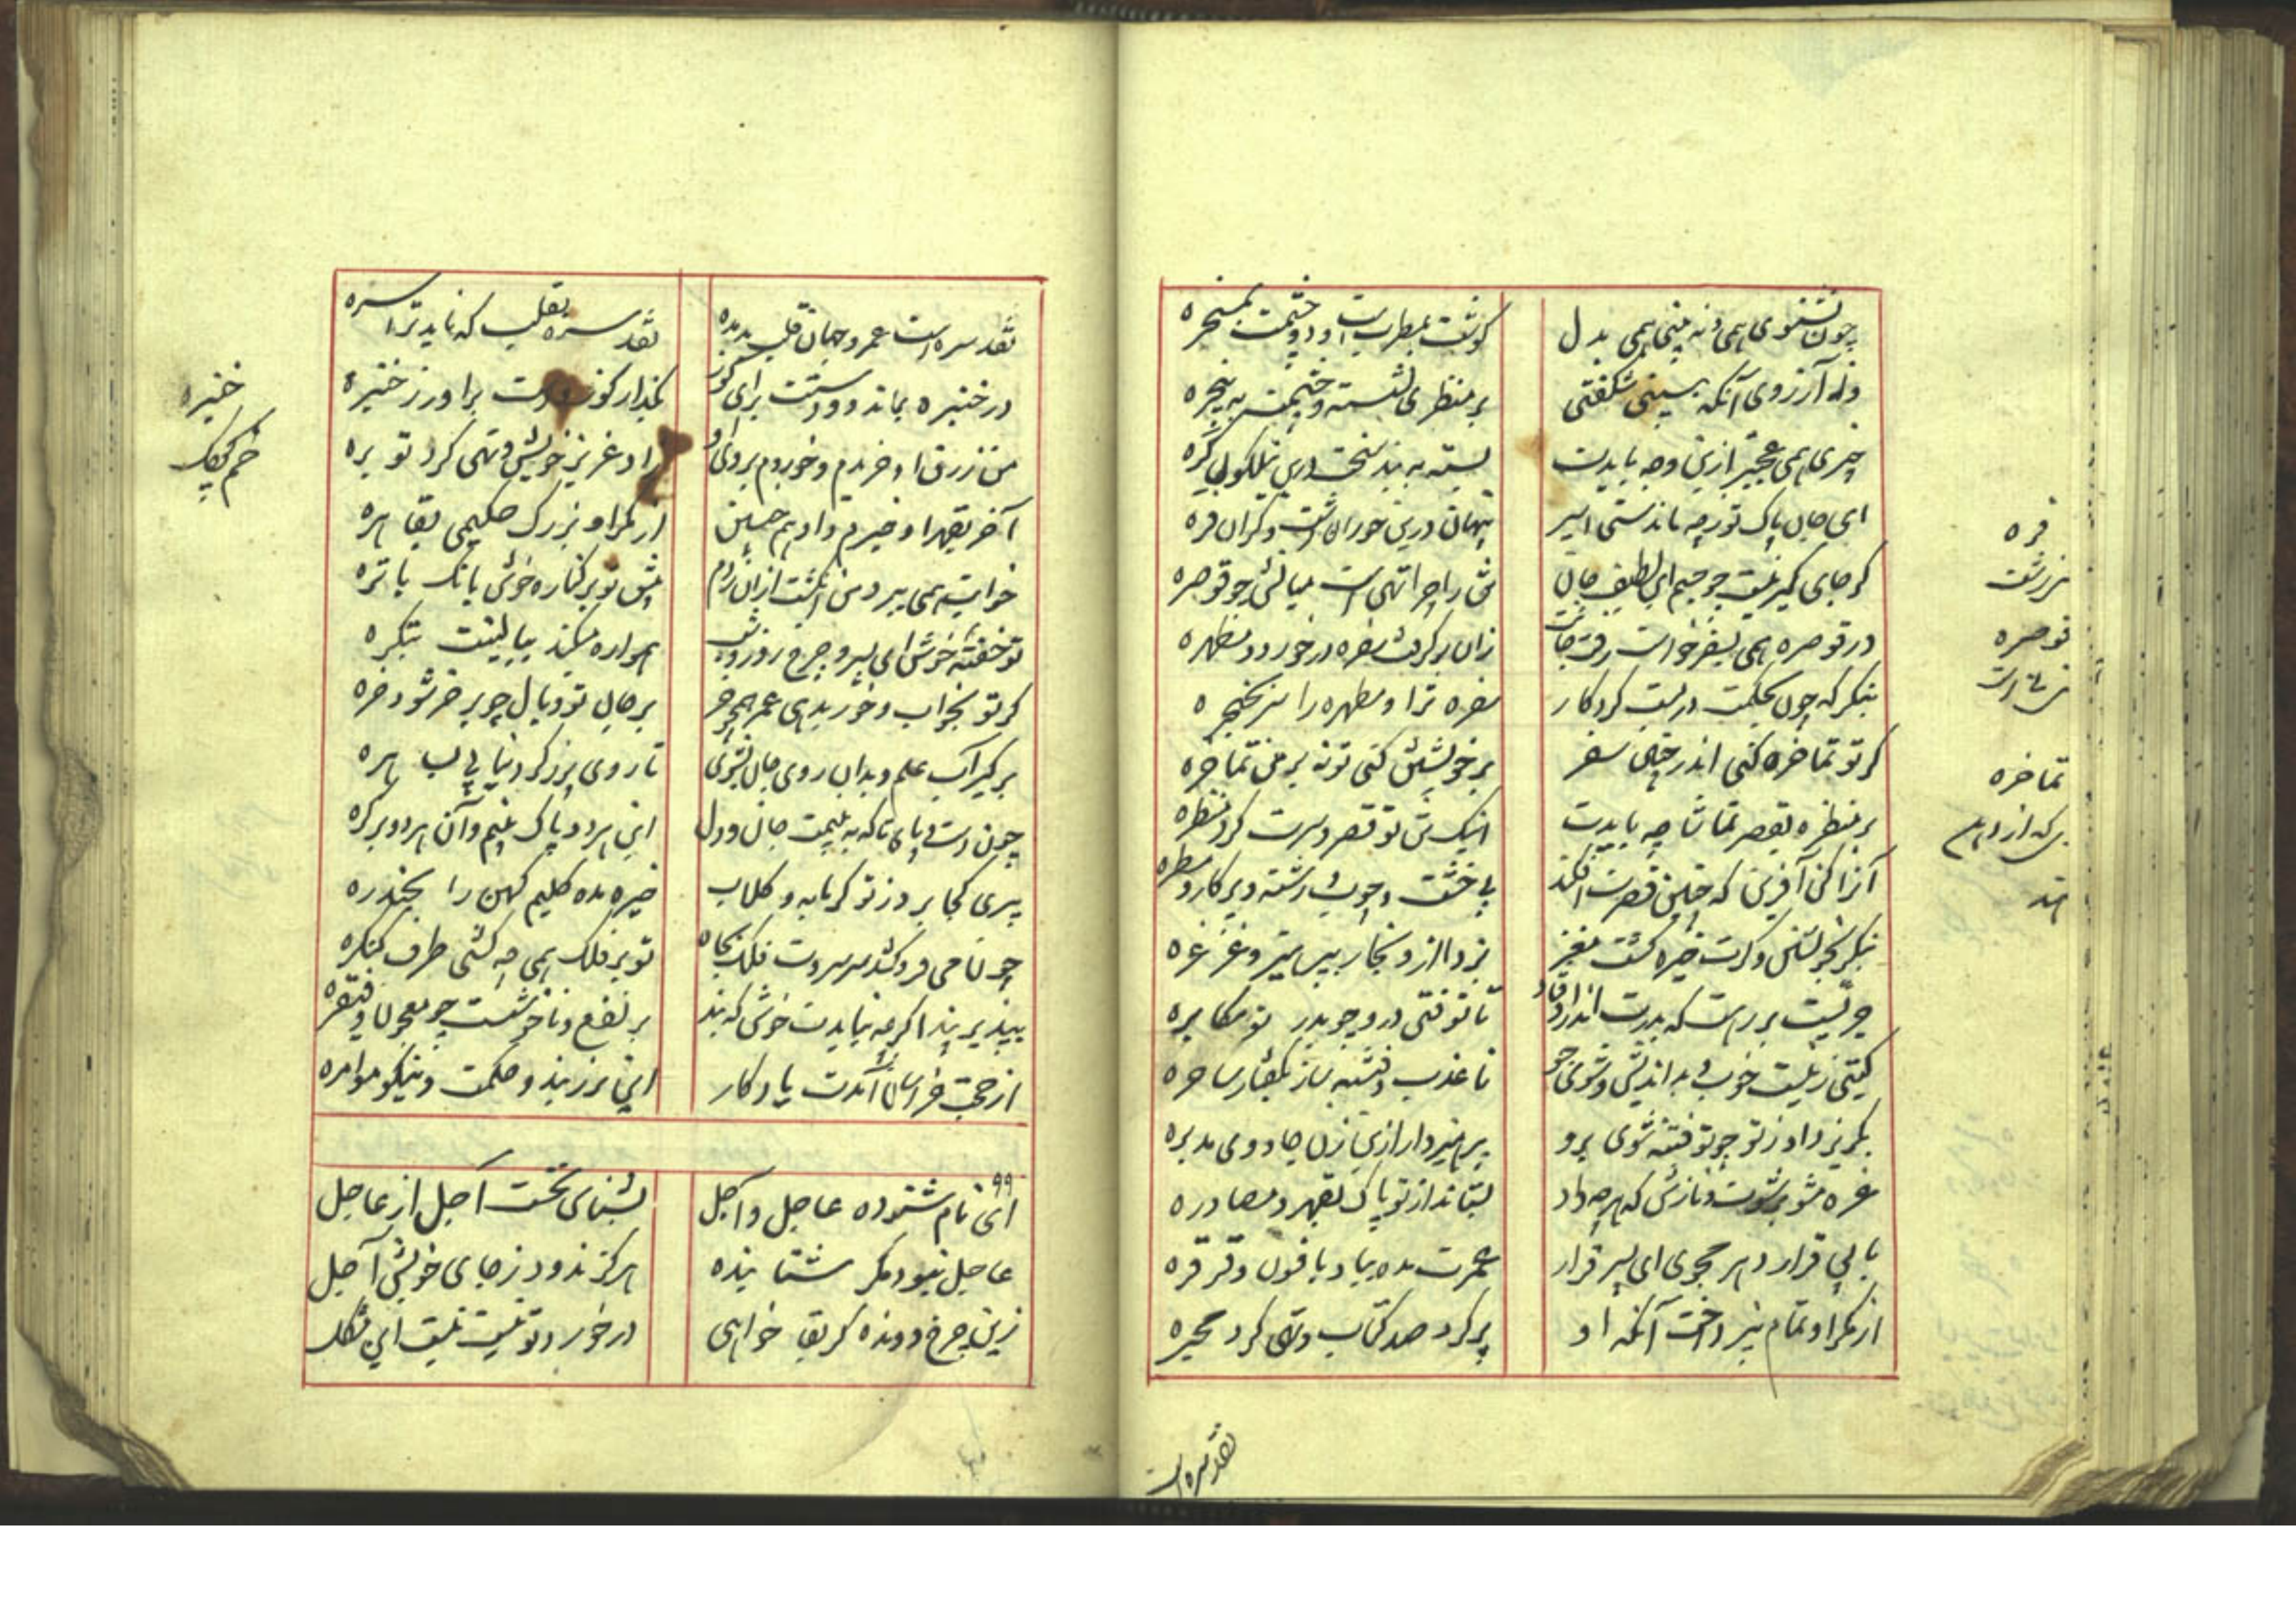 چون نشنوی همی و نه بینی همی بدل
کوشت بمطرب است و دو چشمت بمسخره
وله آرزوی آنکه ببینی شکفتی
بر منظری نشسته و چشمت به پنجره
چیزی همی عجبتر ازین وجه بایدت
بسته به بند سخت درین نیلکون کره
ای جان پاک تو ز چه ماندستی اسیر
پنهان درین خوران زشت و کران فره
کر جای کیر نیست چو جسم این لطیف جان
تن را چرا تهی است میانش چو قوصره
در قوصره همی بسفر خواست رفت جانت
زان بر کرفت سفره در خورد و مطهره
بنکر که چون بحکمت در بست کردکار
سفره ترا و مطهره را سر بحنجره
کر تو تماخره کنی اندر چنین سفر
بر خویشتن کنی تو نه بر من تماخره
بر منظره بقصر تماشا چه بایدت
اینک تن تو قصر و سرت کرد منظره
آنرا کن آفرین که چنین قصرت افکند
بی خشت و چوب و رشته و پرکار و مسطره
بنکر بخویشتن و کرت خیره کشت مغز
بزدای ازو بخار بپرهیز و غرغره
چونست بررست که پدرت اندرو فتاد
تا تو فتی درو چو پدر تو مکابره
کیتی زنیست خوب و بد اندیش و شوی جو
با غدر و فتنه ساز بکفتار ساحره
بکریزد او ز تو چو تو فتنه شوی برو
پرهیز دار ازین زن جادوی مدبره
غره مشو برشوت و نازش که هرچه داد
بستاند از تو پاک بقهر و مصادره
با بی قرار دهر مجوی ای پسر قرار
عمرت مده بباد بافسون و قرقره
از مکر او تمام نپرداخت آنکه او
پر کرد صد کتاب و تهی کرد محبره
فره
قوصره
تماخره
نقد سره است
نقد سره است عمر و جهان قلب بد مده
نقد سره بقلب که ناید ترا سره
در خنبره بماند دو دستت برای کوز
بکذار کوز و دست برآور ز خنبره
من زرق او خریدم و خوردم بروی او
زاد عزیز خویش و تهی کرد توبره
آخر بقهر او خبرم داد هم حسین
از مکر او بزرک حکیمی بقاهره
خوابت همی ببرد من انکشت ازان زدم
پیش تو بر کناره خوش بانک پاتره
تو خفته خوش ای پسر و چرخ روز و شب
همواره میکند ببالینت پنکره
کر تو بخواب و خور بدهی عمر همچو خر
بر جان تو وبال چو بر خر شود خره
بر کیر آب علم و بدان روی جان بشوی
تا روی پر ز کرد نیاید باهره
چون دست و پای پاک نه بینمت جان و دل
این هر دو پاک بینم و آن هر دو پر کره
پیری کجا برد ز تو کرمابه و کلاب
خیره مده کلیم کهن را بجندره
چونانچه می فرو کند سر سروت فلک بچاه
تو بر فلک همی چه کشی طرف کنکره
بپذیر پند اکرچه نیایدت خوش که پند
بر نفع و ناخوشست چو معجون و قنقره
از حجت خراسان آمدت یادکار
این پر ز پند و حکمت و نیکو موامره
۹۹
ای نام شنوده عاجل و آجل
بشناس نخست آجل از عاجل
عاجل نبود مکر شتابنده
هرکز ندود ز جای خویش آجل
زین چرخ دونده کر بقا خواهی
در خورد تو نیست نیست این مشکل
خنبره
خم کوچک